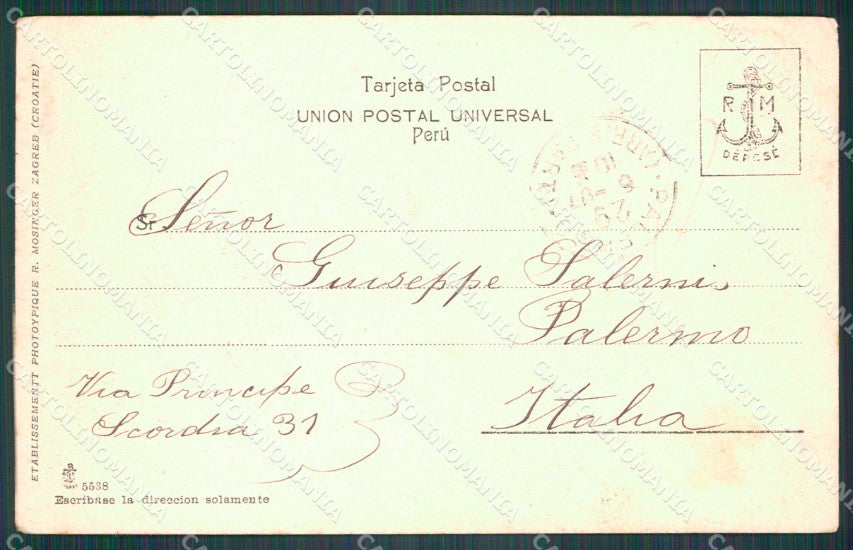 Tarjeta Postal
UNION POSTAL UNIVERSAL
Perú
R M
DÉPOSÉ
Sr Señor
Giuseppe Salerni
Palermo
Via Principe
Scordia 31
Italia
5538
Escríbase la direccion solamente
ETABLISSEMENTT PHOTOYPIQUE R. MOSINGER ZAGREB (CROATIE)
CARTOLINOMANIA